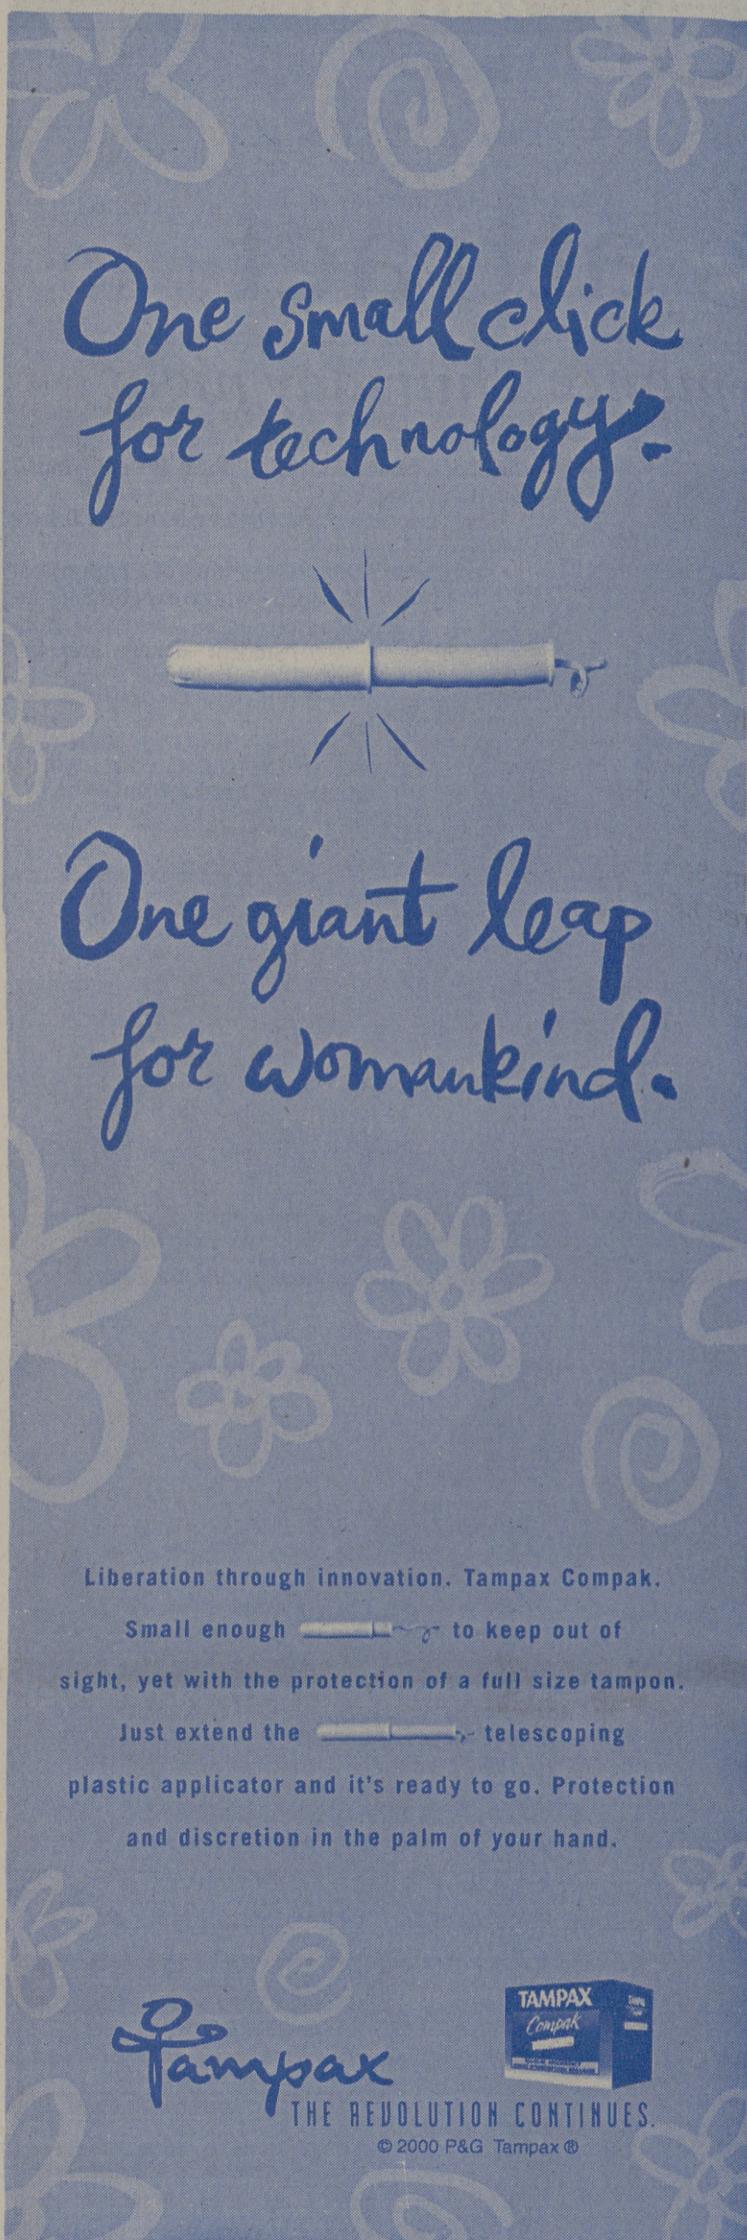 One small click
for technology.
One giant leap
for womankind.
Liberation through innovation. Tampax Compak.
Small enough to keep out of
sight, yet with the protection of a full size tampon.
Just extend the telescoping
plastic applicator and it's ready to go. Protection
and discretion in the palm of your hand.
TAMPAX
Compak
Tampax
THE REVOLUTION CONTINUES.
© 2000 P&G Tampax ®